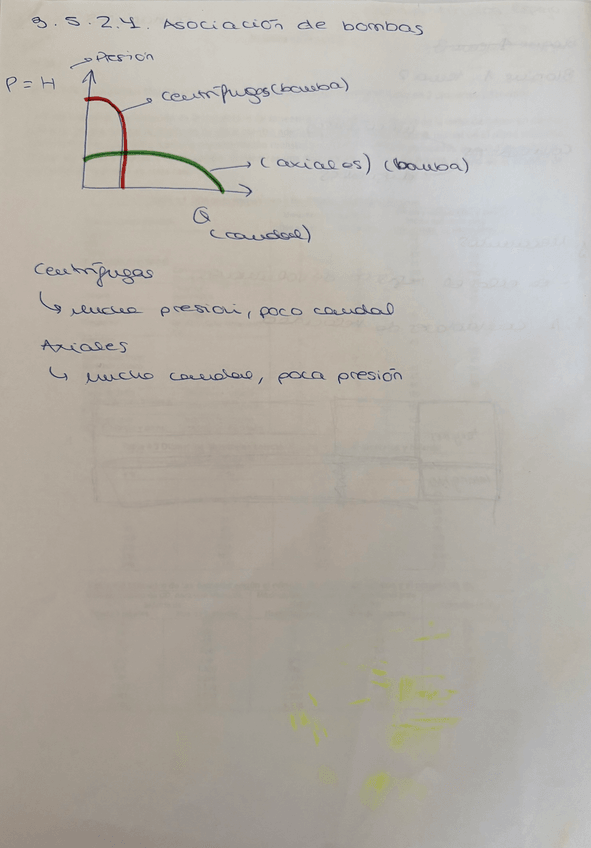 9.5.2.4. Asociación de bombas
Presión
P = H
Centrífugas (bomba)
(axiales) (bomba)
Q
(caudal)
Centrífugas
↳ mucha presion, poco caudal
Axiales
↳ mucho caudal, poca presión